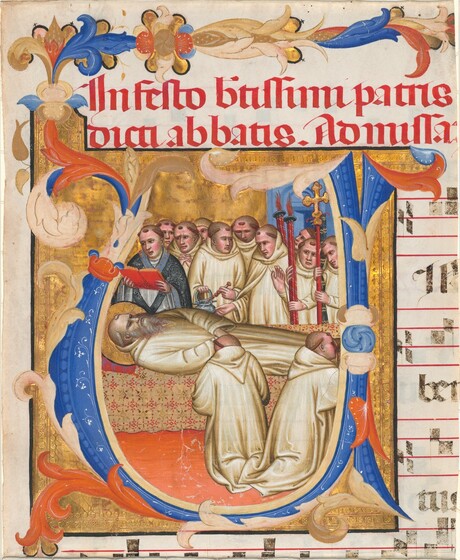 In festo btissimi patris
dicti abbatis. Ad missa
ber